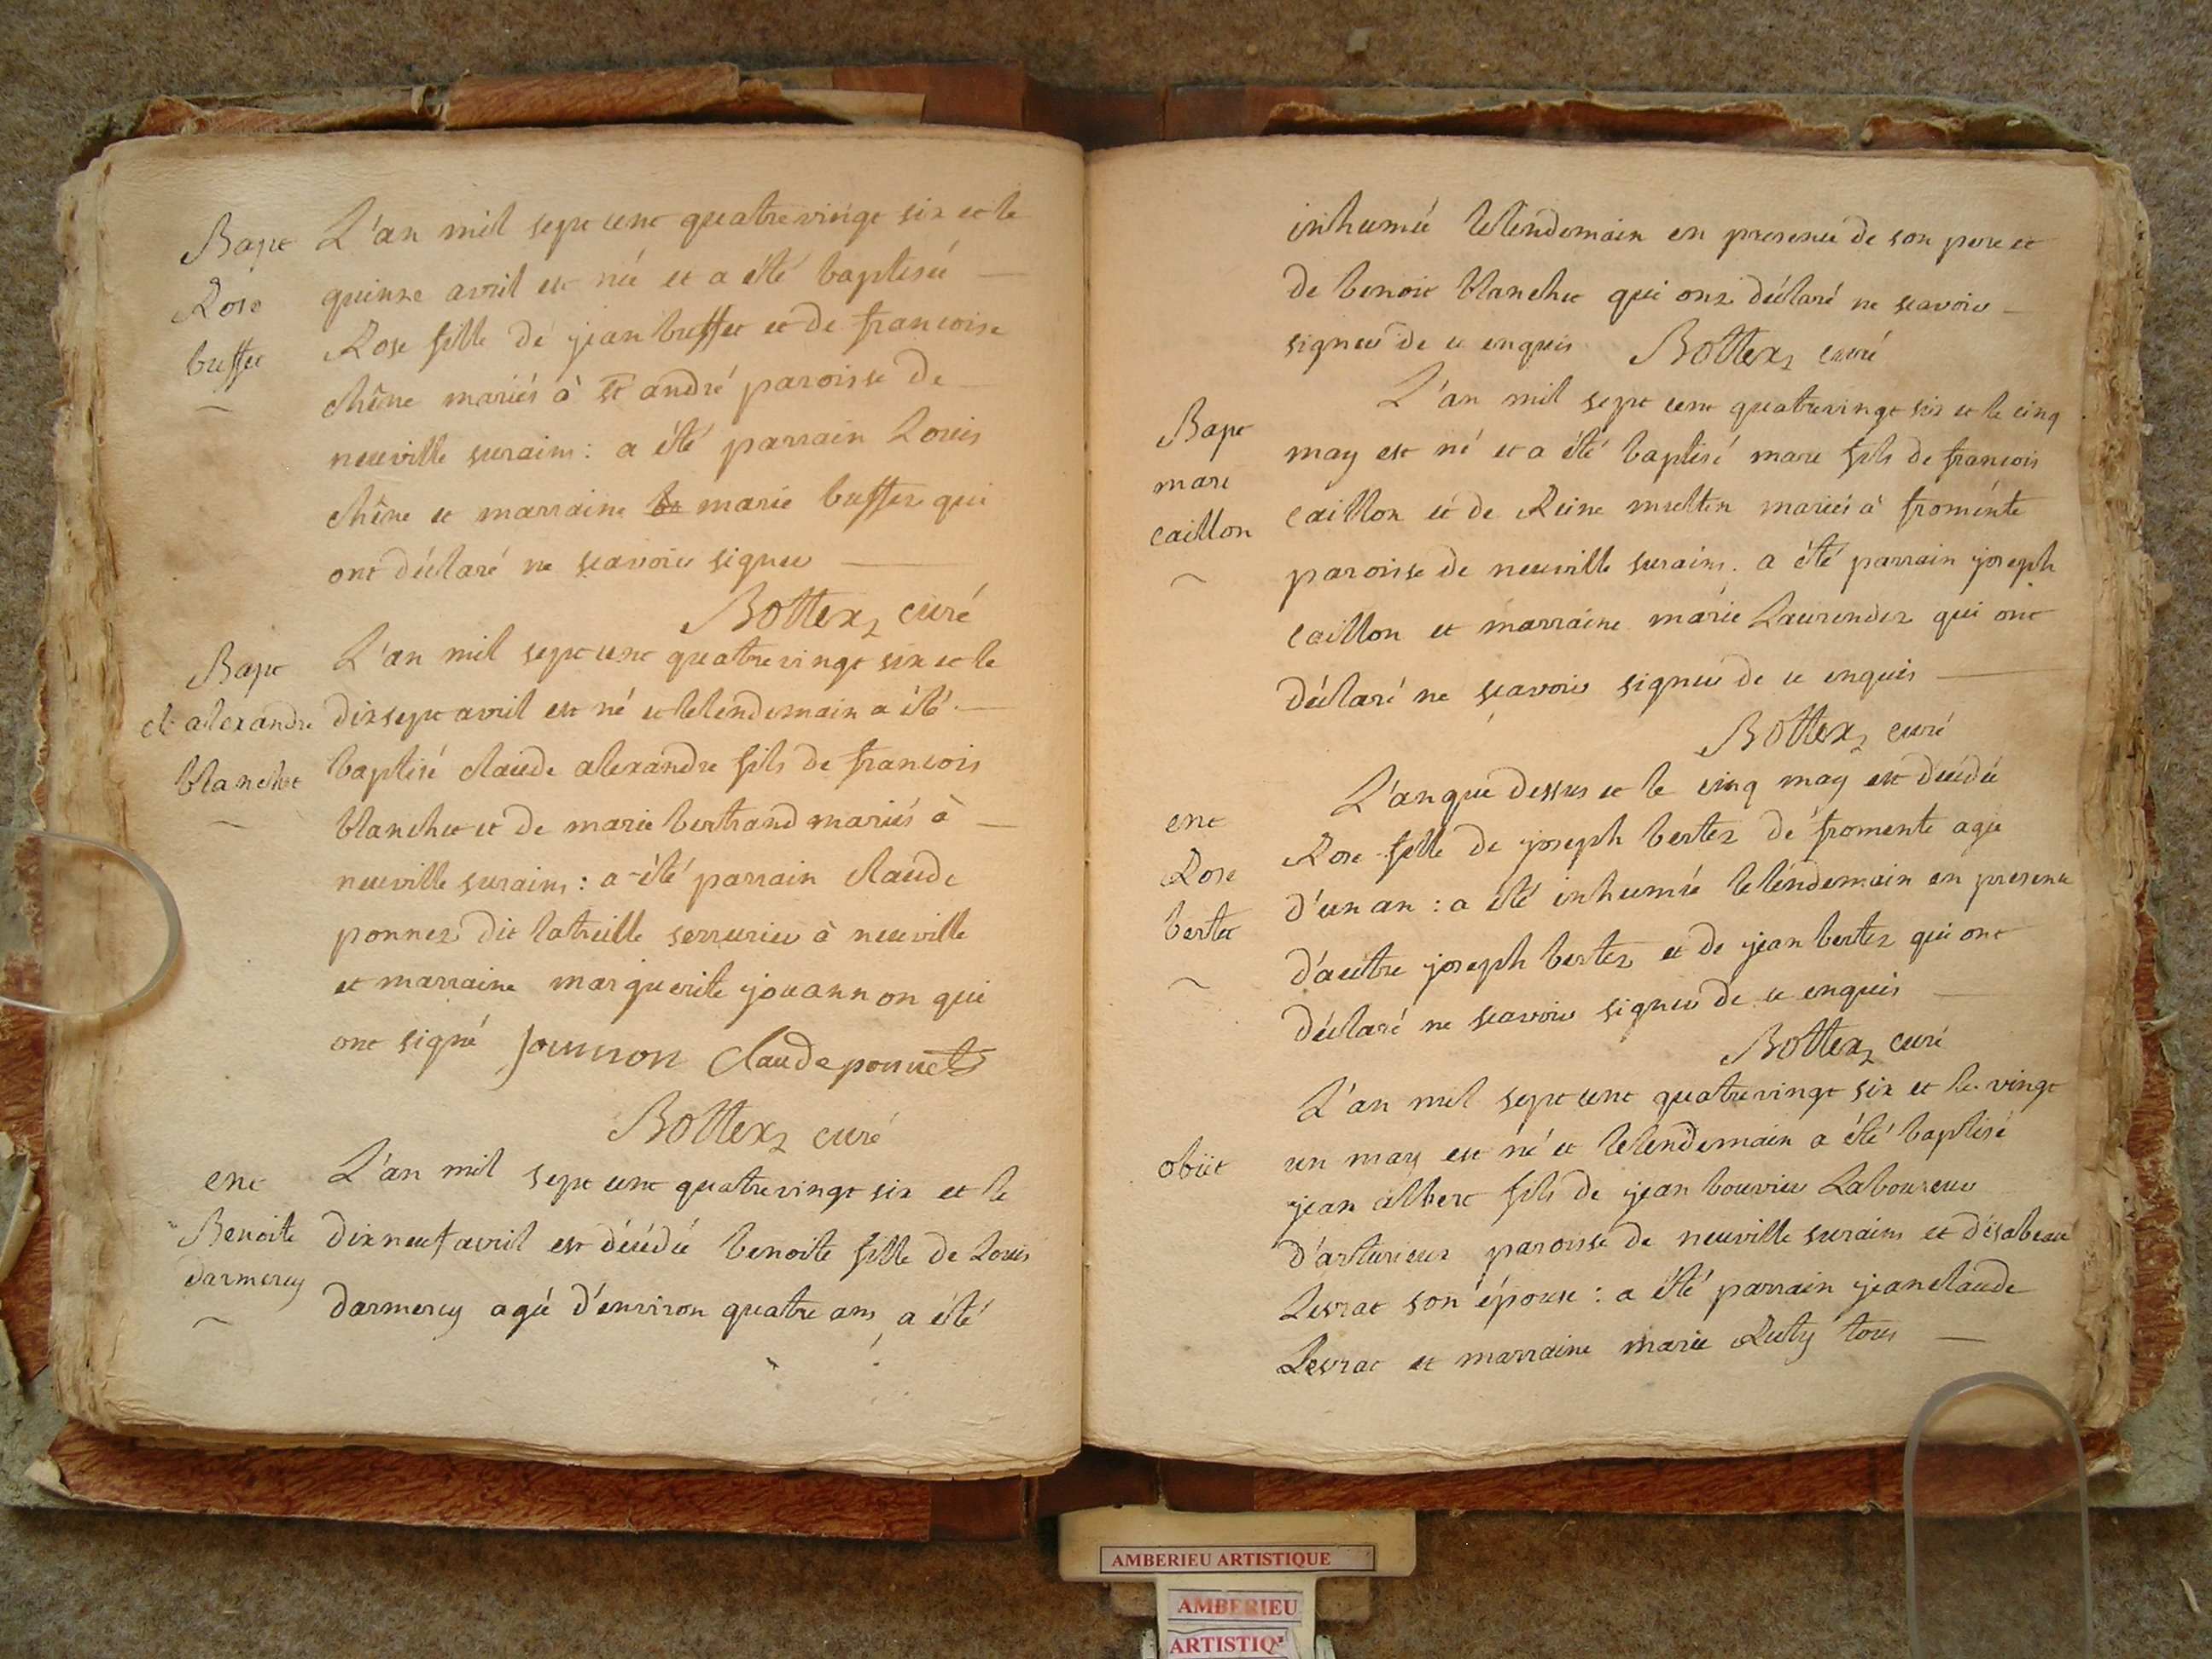 Bapt
Rose
buffet
L'an mil sept cent quatrevingt six et le
quinze avril est née et a été baptisée
Rose fille de jean buffet et de francoise
chêne mariés à st andré paroisse de
neuville surains : a été parrain Louis
chêne et marraine marie buffet qui
ont déclaré ne scavoir signer
Bottex, curé
Bapt
cl. alexandre
blanchet
L'an mil sept cent quatrevingt six et le
dixsept avril est né et lelendemain a été
baptisé claude alexandre fils de francois
blanchet et de marie bertrand mariés à
neuville surains : a été parrain claude
ponnet dit latreille serrurier à neuville
et marraine marguerite jouannon qui
ont signé Claude ponnet
Bottex, curé
ent
Benoite
darmercy
L'an mil sept cent quatrevingt six et le
dixneuf avril est décédée benoite fille de Louis
darmercy agée d'environ quatre ans, a été
inhumée lelendemain en presence de son pere et
de benoit blanchet qui ont déclaré ne scavoir
signer de ce enquis Bottex, curé
Bapt
marc
caillon
L'an mil sept cent quatrevingt six et le cinq
may est né et a été baptisé marc fils de francois
caillon et de Reine mariés à fromente
paroisse de neuville surains. a été parrain joseph
caillon et marraine marie Laurendez qui ont
déclaré ne scavoir signer de ce enquis
Bottex, curé
ent
Rose
bertet
L'an que dessus et le cinq may est décédée
Rose fille de joseph bertet de fromente agée
d'un an : a été inhumée lelendemain en presence
d'autre joseph bertet et de jean bertet qui ont
déclaré ne scavoir signer de ce enquis
Bottex, curé
obiit
L'an mil sept cent quatrevingt six et le vingt
un may est né et lelendemain a été baptisé
jean albert fils de jean bouvier Laboureur
paroisse de neuville surains et d'isabeau
Levrat son épouse : a été parrain jean claude
Levrat et marraine marie Ruty tous
AMBERIEU ARTISTIQUE
AMBERIEU
ARTISTIQ